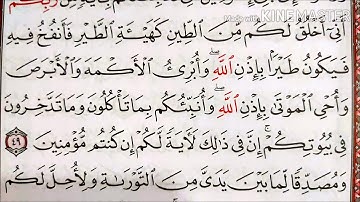 Made with KINEMASTER
رَبِّكُمْ
أَنِّىٓ أَخْلُقُ لَكُم مِّنَ ٱلطِّينِ كَهَيْـَٔةِ ٱلطَّيْرِ فَأَنفُخُ فِيهِ
فَيَكُونُ طَيْرًۢا بِإِذْنِ ٱللَّهِۖ وَأُبْرِئُ ٱلْأَكْمَهَ وَٱلْأَبْرَصَ
وَأُحْىِ ٱلْمَوْتَىٰ بِإِذْنِ ٱللَّهِۖ وَأُنَبِّئُكُم بِمَا تَأْكُلُونَ وَمَا تَدَّخِرُونَ
فِى بُيُوتِكُمْۚ إِنَّ فِى ذَٰلِكَ لَـَٔايَةً لَّكُمْ إِن كُنتُم مُّؤْمِنِينَ ٤٩
وَمُصَدِّقًا لِّمَا بَيْنَ يَدَىَّ مِنَ ٱلتَّوْرَىٰةِ وَلِأُحِلَّ لَكُم